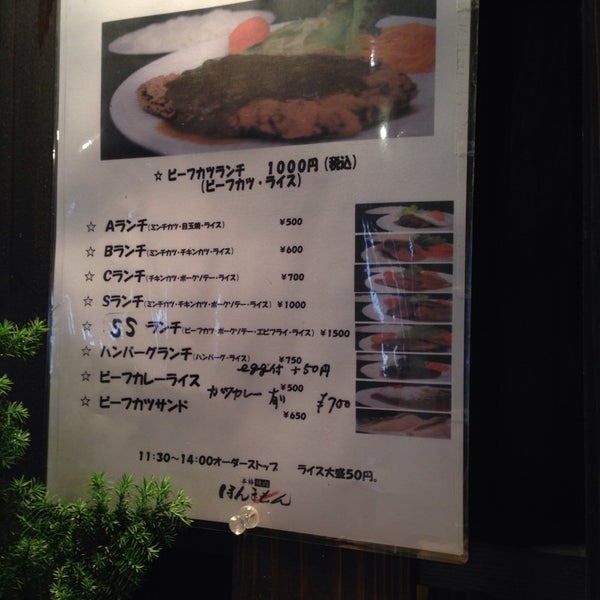 ☆ビーフカツランチ 1000円(税込)
(ビーフカツ・ライス)
☆ Aランチ(ミンチカツ・目玉焼・ライス) ¥500
☆ Bランチ(ミンチカツ・チキンカツ・ライス) ¥600
☆ Cランチ(チキンカツ・ポークソテー・ライス) ¥700
☆ Sランチ(ミンチカツ・チキンカツ・ポークソテー・ライス) ¥1000
☆ SS ランチ(ビーフカツ・ポークソテー・エビフライ・ライス) ¥1500
☆ ハンバーグランチ(ハンバーグ・ライス) ¥750
egg付 +50円
☆ ビーフカレーライス ¥500
カツカレー 有り ¥700
☆ ビーフカツサンド ¥650
11:30~14:00オーダーストップ ライス大盛50円。
ほんまもん